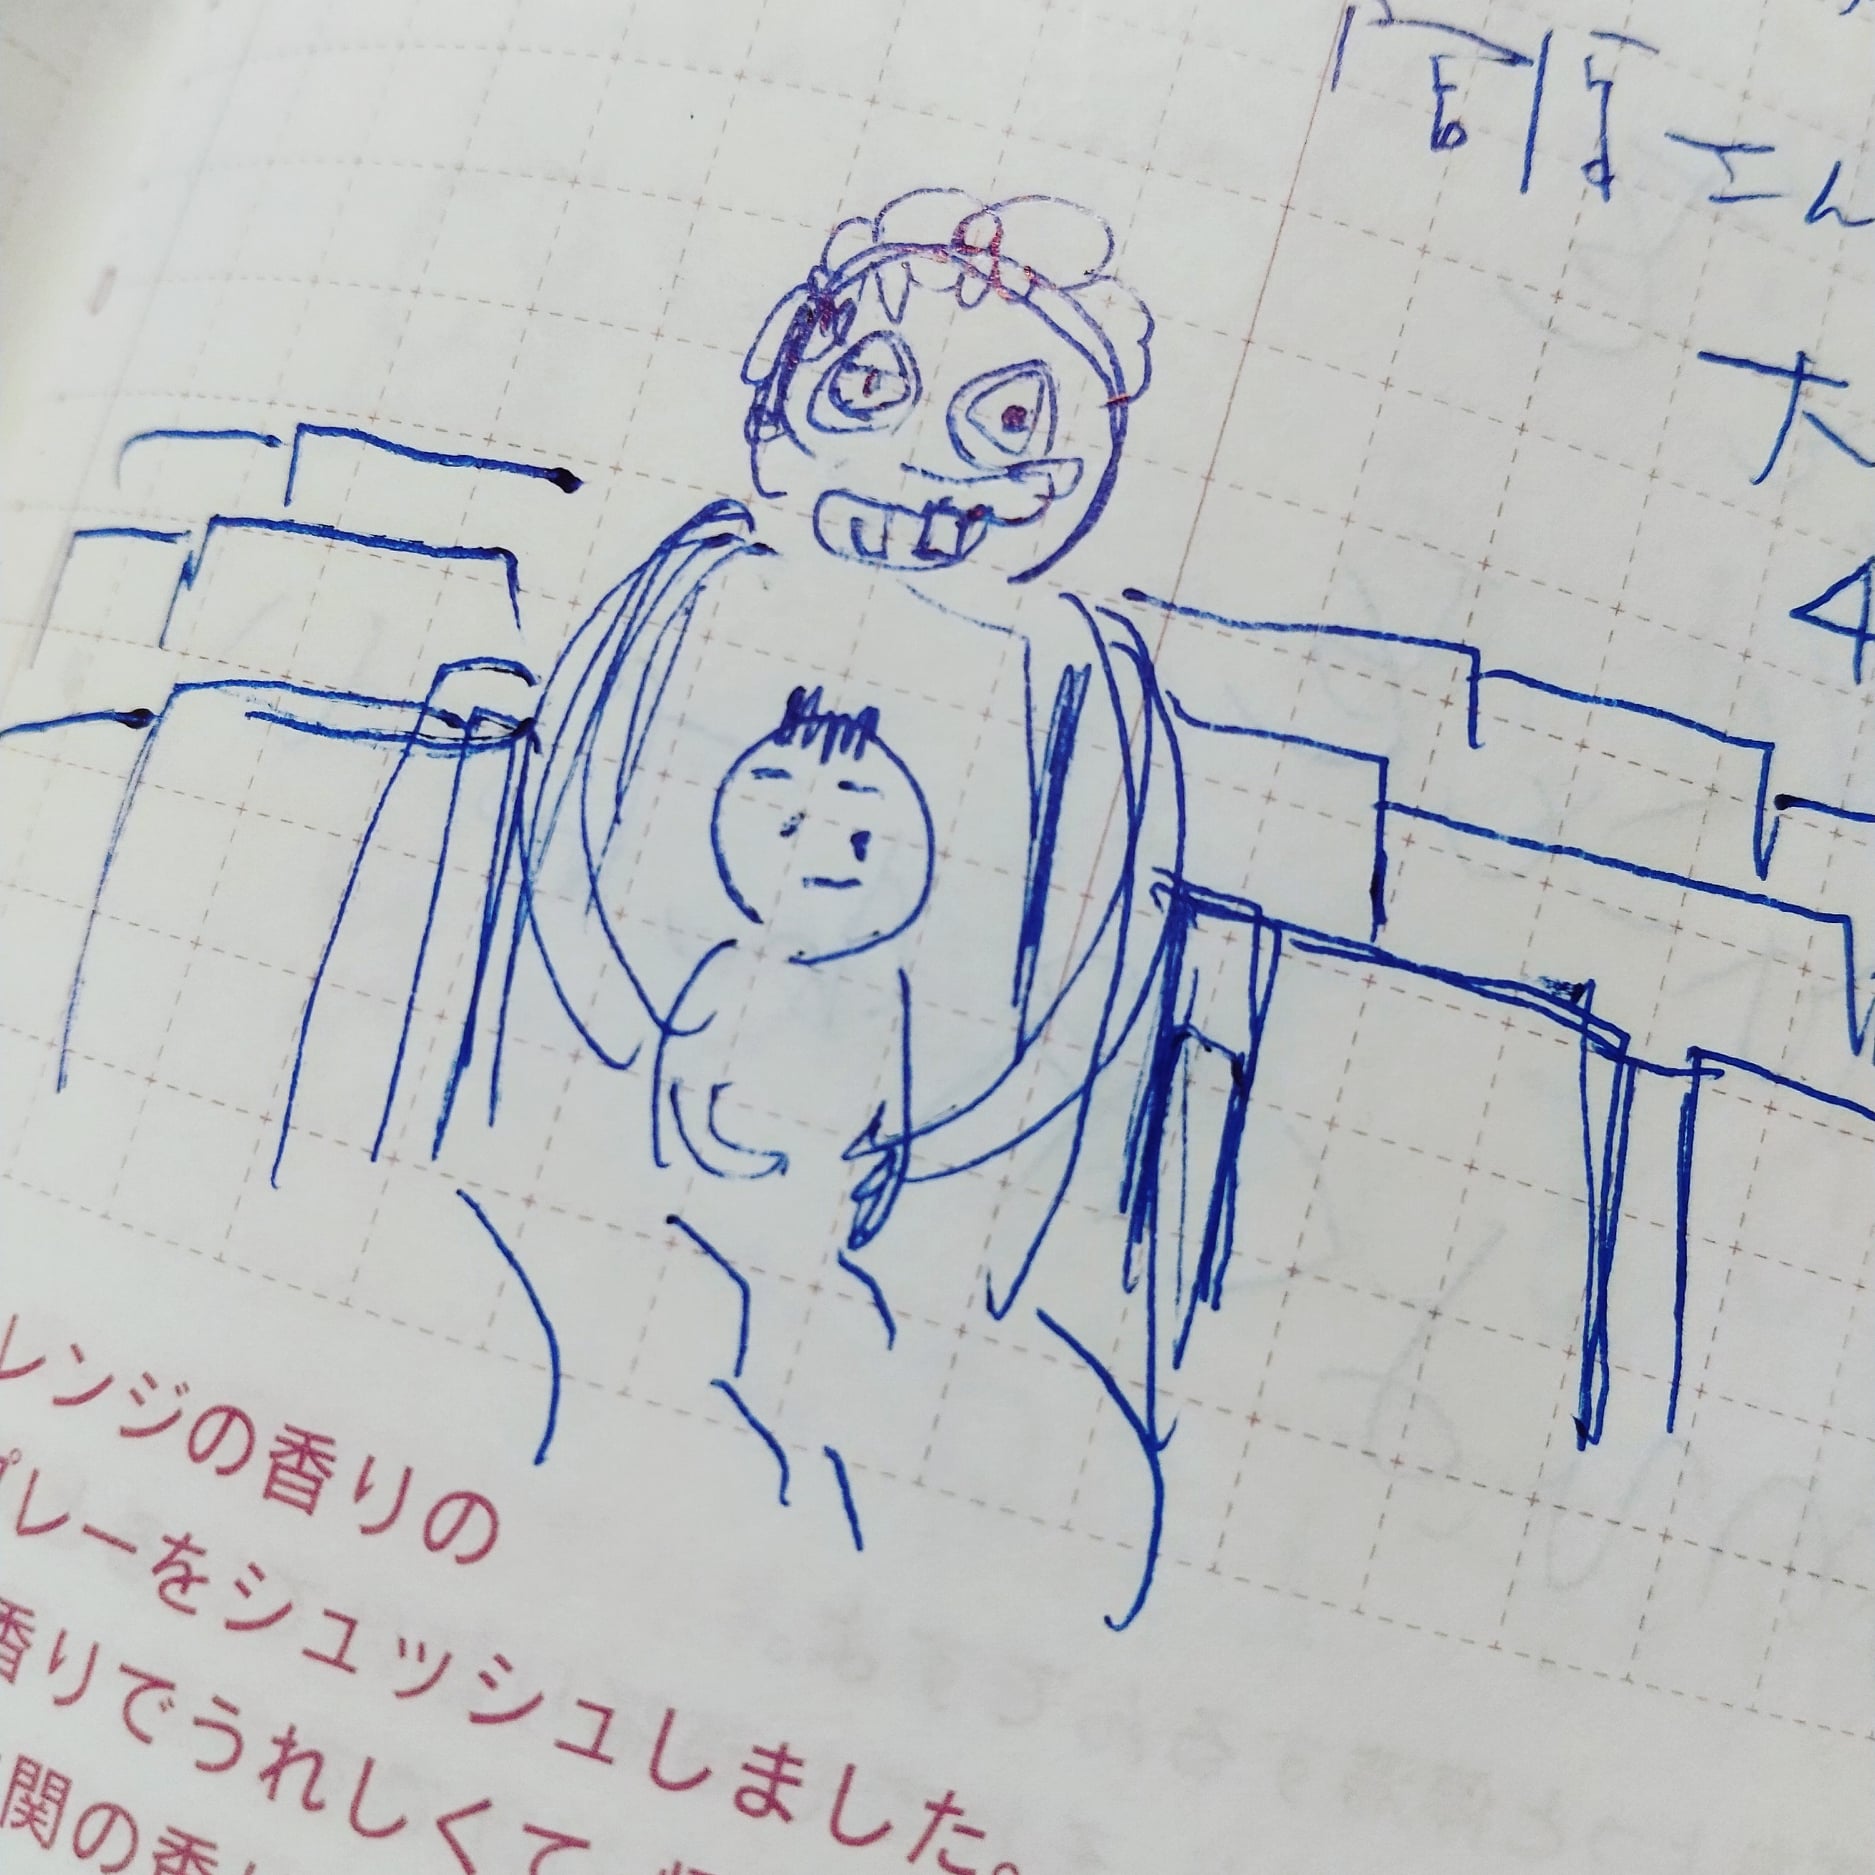 さん
大
レンジの香りの
プレーをシュッシュしました。
香りでうれしくて
関の香